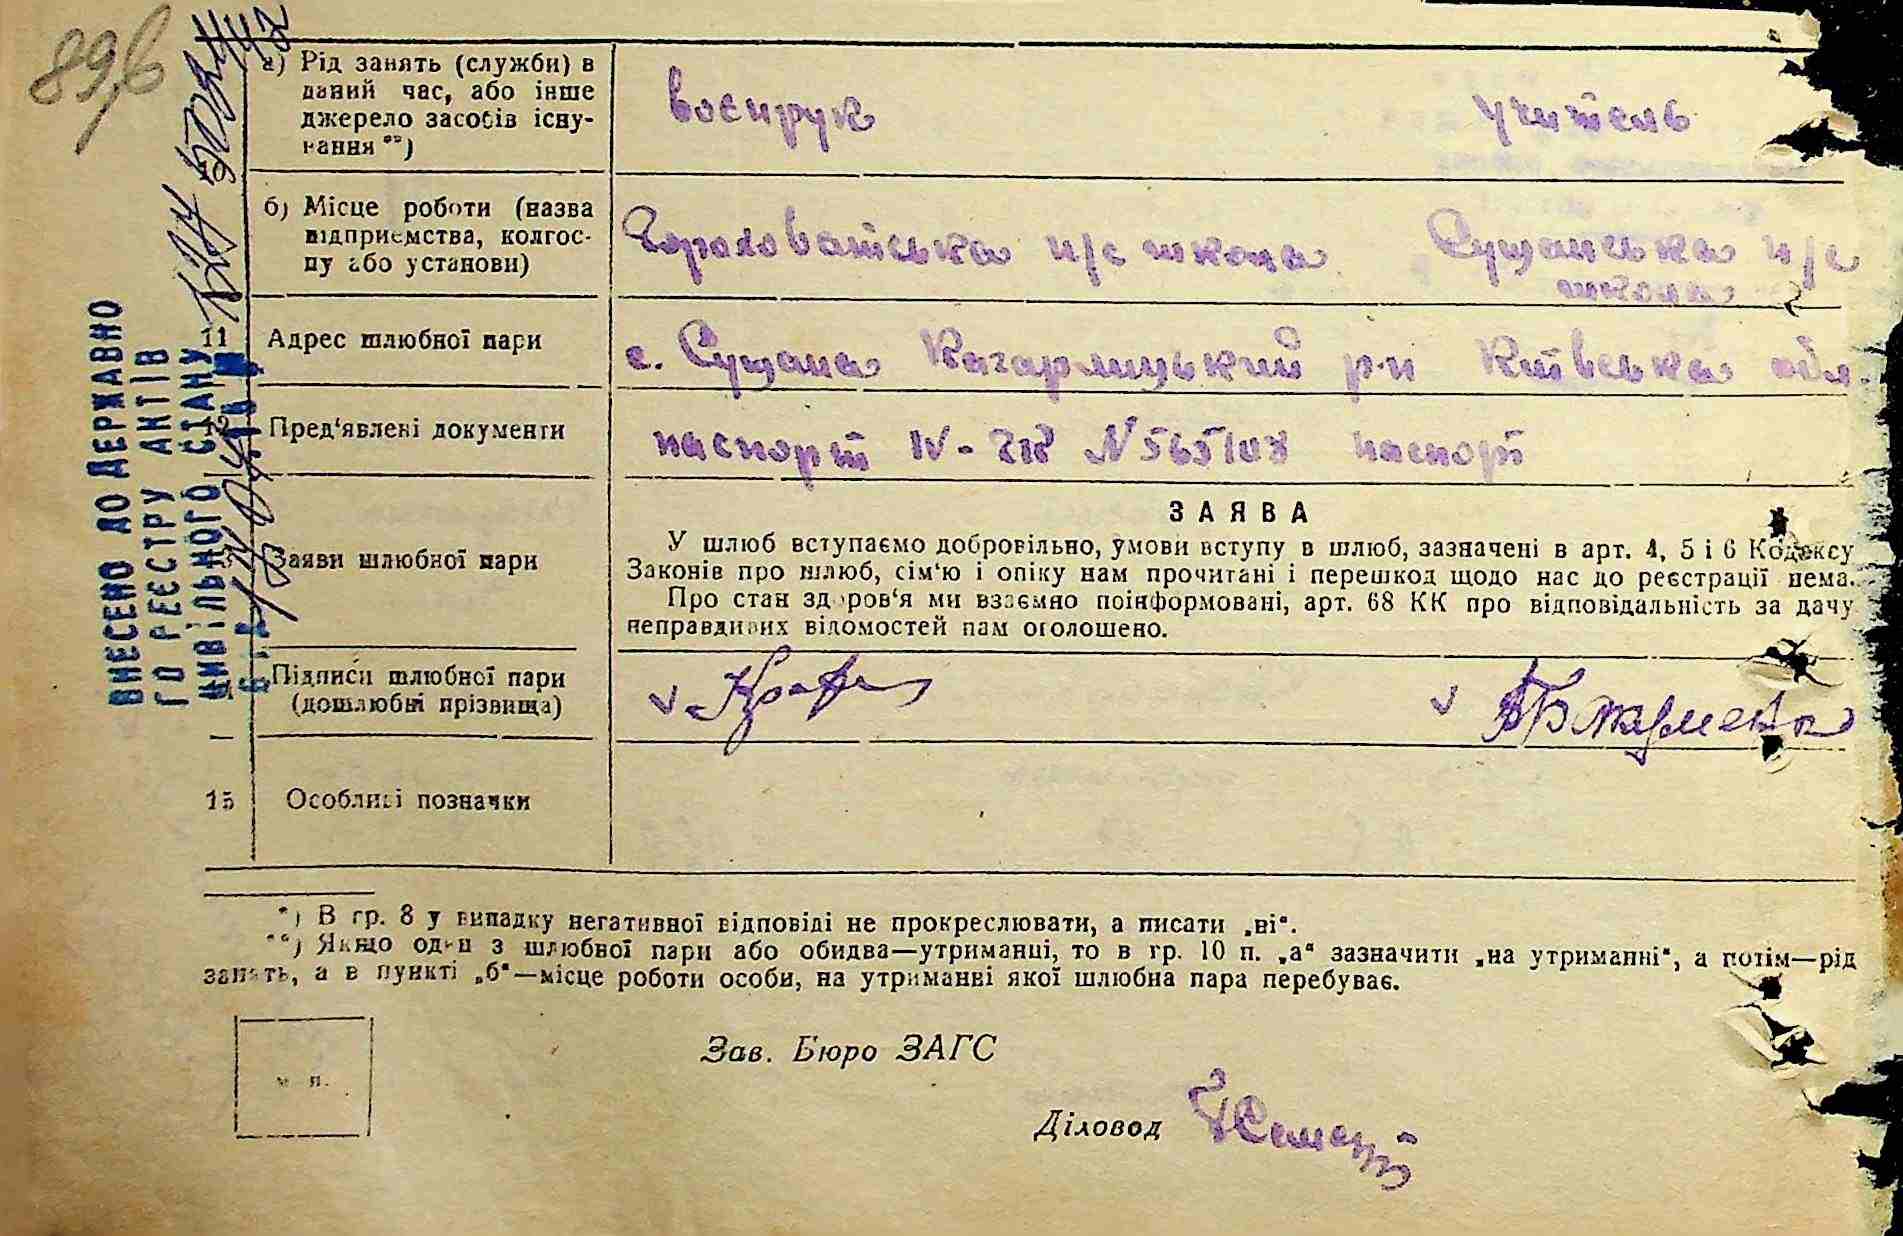 89,б
а) Рід занять (служби) в
даний час, або інше
джерело засобів існу-
вання **)
воєнрук учитель
б) Місце роботи (назва
підприємства, колгос-
пу або установи)
Гороховатська н/с школа Сущанська н/с
школа
11 Адрес шлюбної пари
с. Сущана Кагарлицький р-н Київська обл.
12 Пред'явлені документи
паспорт IV- № 565108 паспорт
Заяви шлюбної пари
ЗАЯВА
У шлюб вступаємо добровільно, умови вступу в шлюб, зазначені в арт. 4, 5 і 6 Кодексу
Законів про шлюб, сім'ю і опіку нам прочитані і перешкод щодо нас до реєстрації нема.
Про стан здоров'я ми взаємно поінформовані, арт. 68 КК про відповідальність за дачу
неправдивих відомостей нам оголошено.
Підписи шлюбної пари
(дошлюбні прізвища)
15 Особливі позначки
*) В гр. 8 у випадку негативної відповіді не прокреслювати, а писати „ні".
**) Якщо один з шлюбної пари або обидва—утриманці, то в гр. 10 п. „а" зазначити „на утриманні", а потім—рід
занять, а в пункті „б"—місце роботи особи, на утриманні якої шлюбна пара перебуває.
м. п.
Зав. Бюро ЗАГС
Діловод
ВНЕСЕНО ДО ДЕРЖАВНО
ГО РЕЄСТРУ АКТІВ
ЦИВІЛЬНОГО СТАНУ